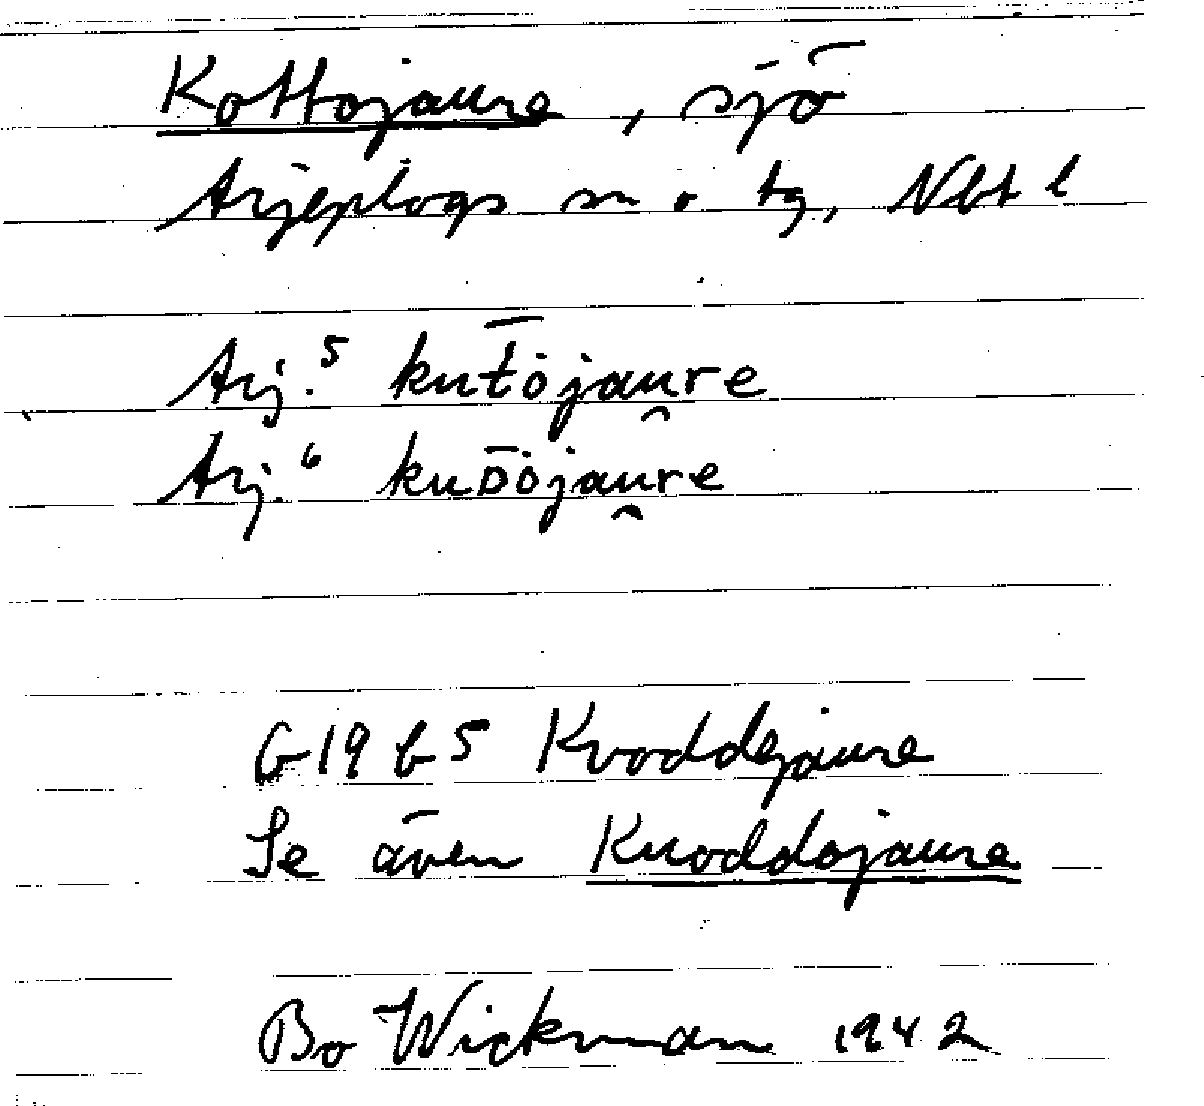 Kottojaure, sjö
Arjeplogs sn o tg, Nbt l
Arj.⁵ kut̄ȯjau̯re
Arj.⁶ kuᴅ̄ȯjau̯re
G19b5 Kvoddejaure
Se även Kuoddojaure
Bo Wickman 1942